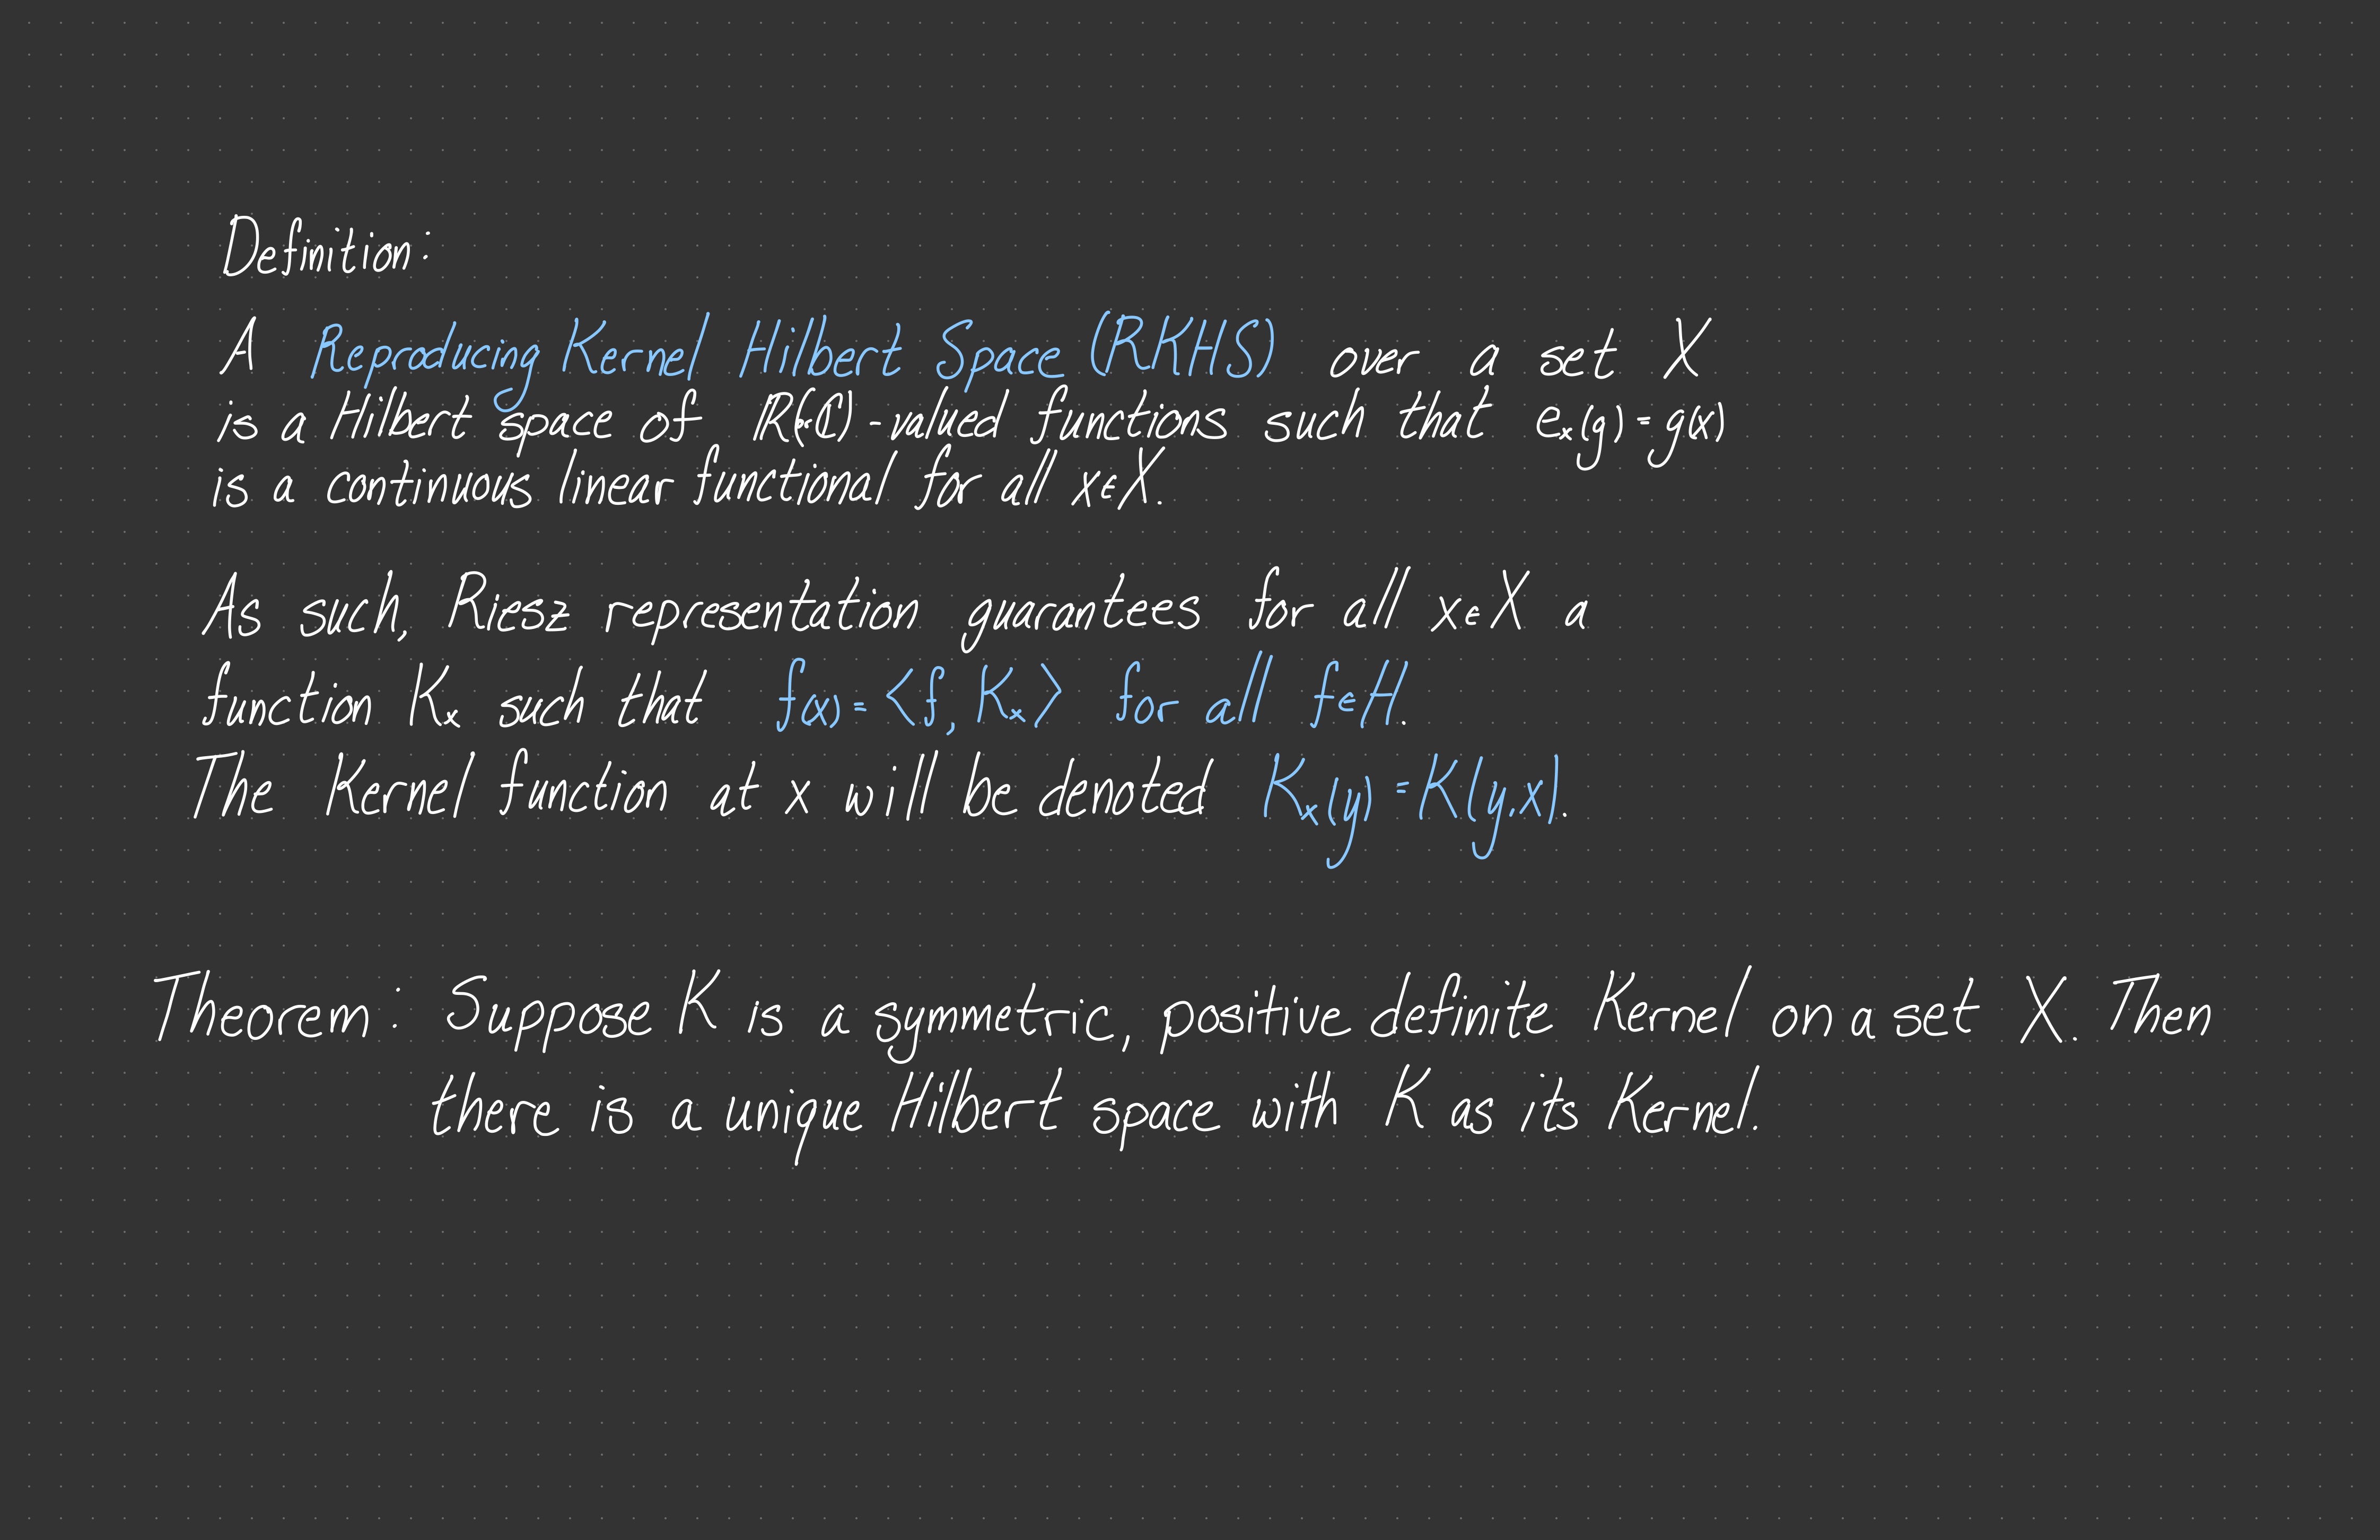 Definition:
A Reproducing Kernel Hilbert Space (RKHS) over a set X
is a Hilbert space of ℝ(or ℂ)-valued functions such that eₓ(g) = g(x)
is a continuous linear functional for all x∈X.
As such, Riesz representation guarantees for all x∈X a
function Kₓ such that f(x) = ⟨f, Kₓ⟩ for all f∈H.
The Kernel function at x will be denoted Kₓ(y) = K(y,x).
Theorem: Suppose K is a symmetric, positive definite Kernel on a set X. Then
there is a unique Hilbert space with K as its Kernel.